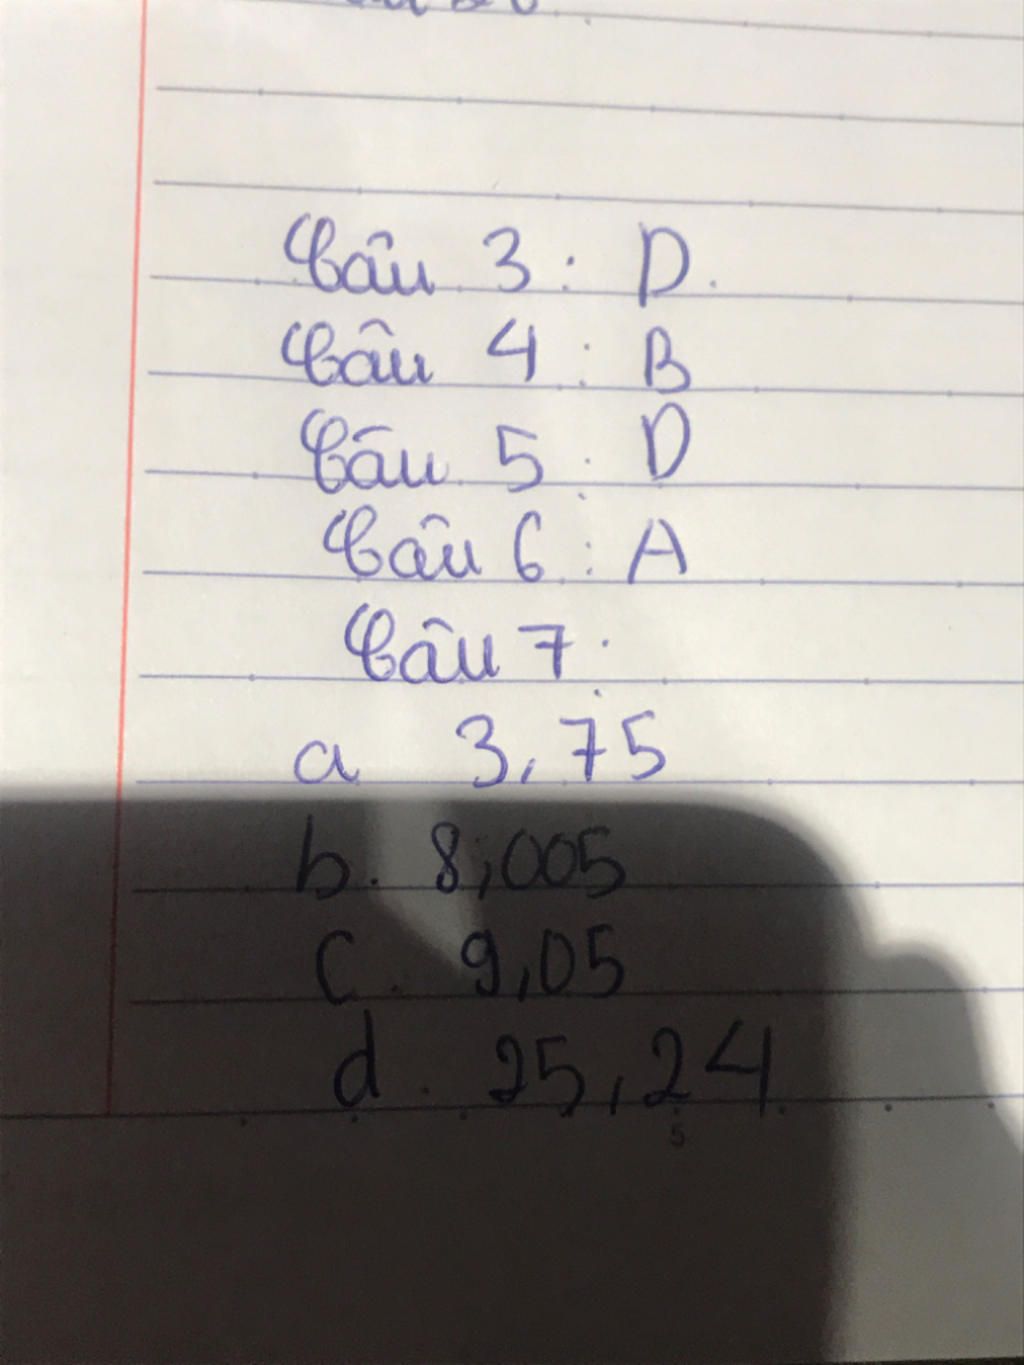 Câu 3 : D.
Câu 4 : B
Câu 5 : D
Câu 6 : A
Câu 7 :
a 3,75
b. 8,005
c. 9,05
d. 25,24
5